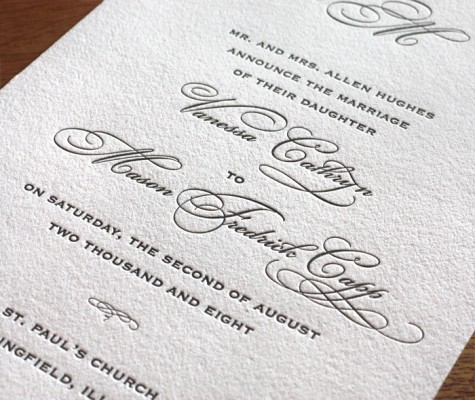 M
MR. AND MRS. ALLEN HUGHES
ANNOUNCE THE MARRIAGE
OF THEIR DAUGHTER
Vanessa Cathryn
TO
Mason Fredrick Capp
ON SATURDAY, THE SECOND OF AUGUST
TWO THOUSAND AND EIGHT
ST. PAUL'S CHURCH